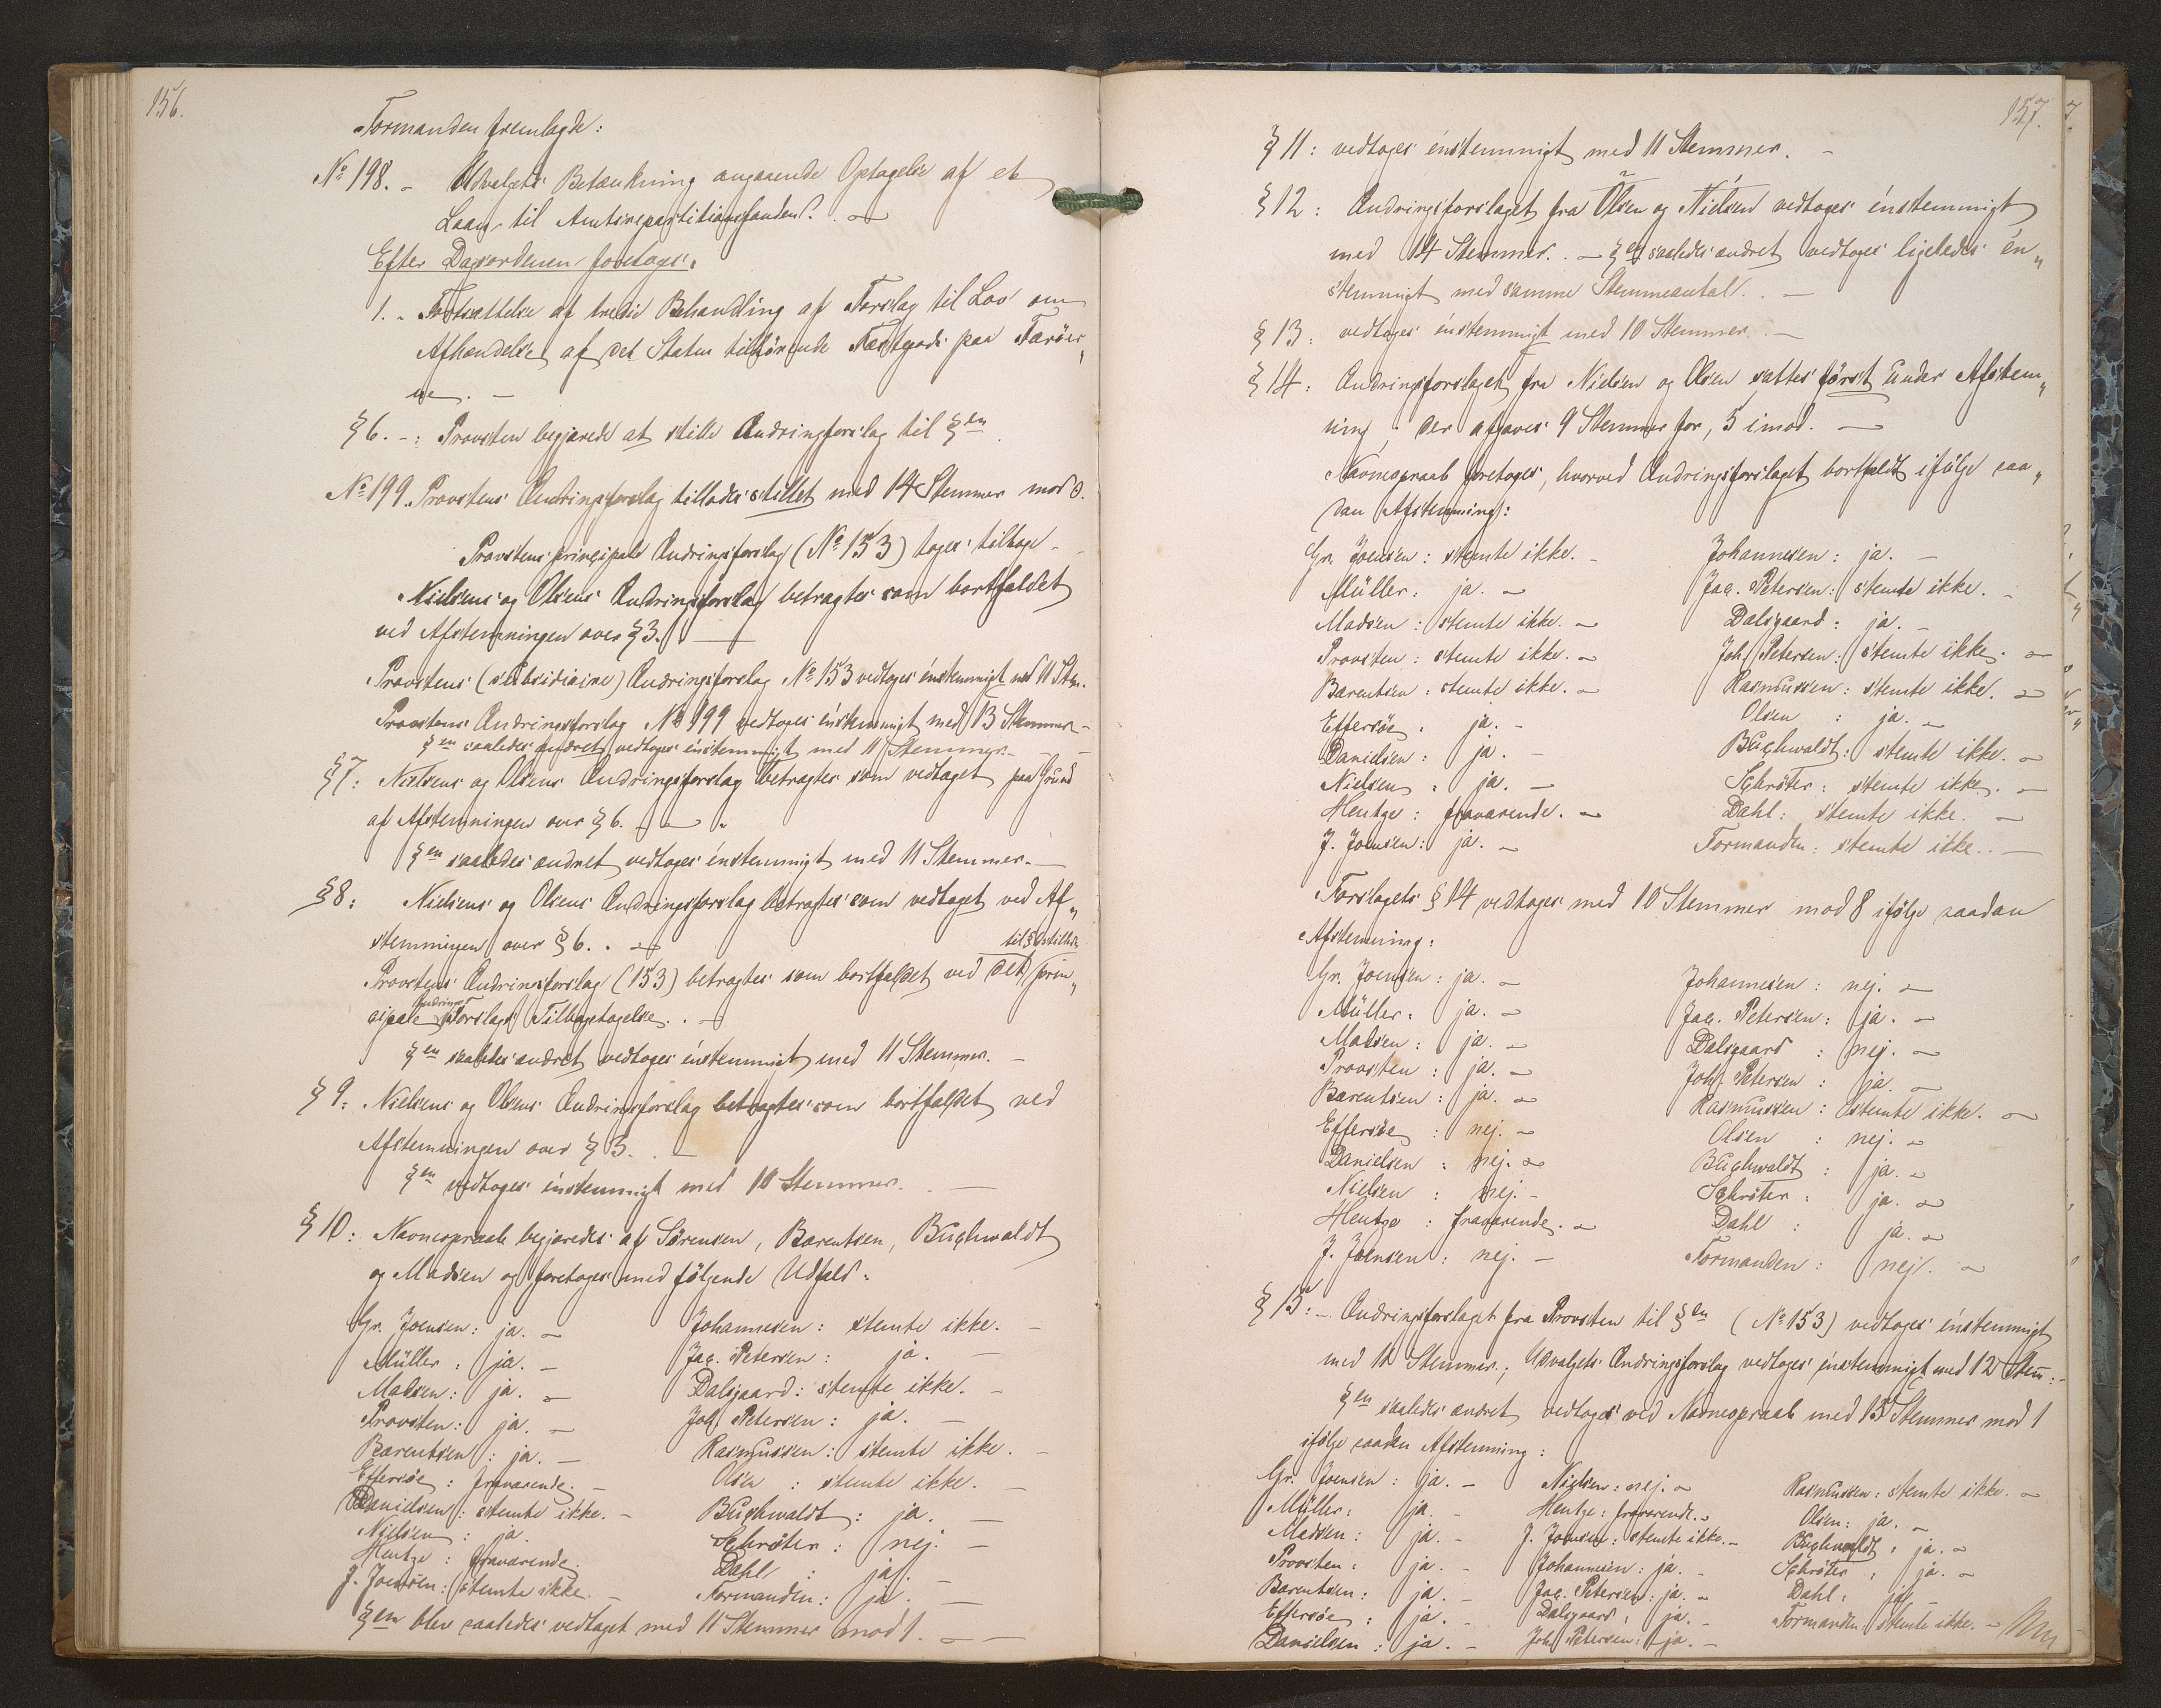 156.
Formanden fremlagde:
No 198. - Udvalgets Betænkning angaaende Optagelse af et
Laan til Amtsrepartitionsfonden. -
Efter Dagsordenen foretoges:
1. - Fortsættelse af tredie Behandling af Forslag til Lov om
Afhændelse af det Staten tilhørende Fæstegods paa Færöer„
ne. -
§ 6. -: Provsten begjærede at stille Ændringsforslag til §en.
No 199. Provstens Ændringsforslag tillodes stillet med 14 Stemmer mod 0.
Provstens principale Ændringsforslag (No 153) toges tilbage -
Nielsens og Olsens Ændringsforslag betragtes som bortfaldet
ved Afstemningen over § 3. -
Provstens (subsidiaire) Ændringsforslag No 153 vedtoges énstemmigt med 11 Stem.
Provstens Ændringsforslag No 199 vedtoges énstemmigt med 13 Stemmer -
§en saaledes ændret vedtoges énstemmigt med 11 Stemmer. -
§ 7: Nielsens og Olsens Ændringsforslag betragtes som vedtaget paa Grund
af Afstemningen over § 6. -
§en saaledes ændret vedtoges énstemmigt med 11 Stemmer. -
§ 8: Nielsens og Olsens Ændringsforslag betragtes som vedtaget ved Af„
stemningen over § 6. . -
til § 6 stillede
Provstens Ændringsforslag (153) betragtes som bortfaldet ved det prin„
cipale Ændrings Forslags Tilbagetagelse. . -
§en saaledes ændret vedtoges énstemmigt med 11 Stemmer. -
§ 9: Nielsens og Olsens Ændringsforslag betragtes som bortfaldet ved
Afstemningen over § 3. . -
§en vedtoges énstemmigt med 10 Stemmer. . -
§ 10: Navneopraab begjæredes af Sørensen, Barentsen, Buchwaldt
og Madsen og foretoges med følgende Udfald:
Gr. Joensen: ja. - Johannesen: stemte ikke. -
Müller: ja. - Jac. Petersen: ja. -
Madsen: ja. - Dalsgaard: stemte ikke. -
Provsten: ja. - Joh. Petersen: ja. -
Barentsen: ja. - Rasmussen: stemte ikke. -
Effersøe: fraværende. - Olsen: stemte ikke. -
Danielsen: stemte ikke. - Buchwaldt: ja. -
Nielsen: ja. Schröter: nej. -
Hentze: fraværende. Dahl: ja. -
J. Joensen: stemte ikke. - Formanden: ja. -
§en blev saaledes vedtaget med 11 Stemmer mod 1. -
157.
§ 11: vedtoges énstemmigt med 11 Stemmer. -
§ 12: Ændringsforslaget fra Olsen og Nielsen vedtoges énstemmigt
med 14 Stemmer. . - §en saaledes ændret vedtoges ligeledes én„
stemmigt med samme Stemmeantal. . -
§ 13: vedtoges énstemmigt med 10 Stemmer. -
§ 14: Ændringsforslaget fra Nielsen og Olsen sattes først under Afstem„
ning, der afgaves 9 Stemmer for, 5 imod. -
Navneopraab foretoges, hvorved Ændringsforslaget bortfaldt ifølge saa„
dan Afstemning:
Gr. Joensen: stemte ikke. - Johannesen: ja. -
Müller: ja. - Jac. Petersen: stemte ikke. -
Madsen: stemte ikke. - Dalsgaard: ja. -
Provsten: stemte ikke. - Joh. Petersen: stemte ikke. -
Barentsen: stemte ikke. - Rasmussen: stemte ikke. -
Effersøe: ja. - Olsen: ja. -
Danielsen: ja. - Buchwaldt: stemte ikke. -
Nielsen: ja. - Schröter: stemte ikke. -
Hentze: fraværende. - Dahl: stemte ikke. -
J. Joensen: ja. - Formanden: stemte ikke. -
Forslagets § 14 vedtoges med 10 Stemmer mod 8 ifølge saadan
Afstemning:
Gr. Joensen: ja. - Johannesen: nej. -
Müller: ja. - Jac. Petersen: ja. -
Madsen: ja. - Dalsgaard: nej. -
Provsten: ja. - Joh. Petersen: ja. -
Barentsen: ja. - Rasmussen: stemte ikke. -
Effersøe: nej. - Olsen: nej. -
Danielsen: nej. - Buchwaldt: ja. -
Nielsen: nej. - Schröter: ja. -
Hentze: fraværende. - Dahl: ja. -
J. Joensen: nej. - Formanden: nej. -
§ 15: - Ændringsforslaget fra Provsten til §en (No 153) vedtoges énstemmigt
med 12 Stemmer; Udvalgets Ændringsforslag vedtoges énstemmigt med 12 Stem. -
§en saaledes ændret vedtoges ved Navneopraab med 15 Stemmer mod 1
ifølge saadan Afstemning:
Gr. Joensen: ja. - Nielsen: nej. - Rasmussen: stemte ikke. -
Müller: ja. - Hentze: fraværende. - Olsen: ja. -
Madsen: ja. - J. Joensen: stemte ikke. - Buchwaldt: ja. -
Provsten: ja. - Johannesen: ja. - Schröter: ja. -
Barentsen: ja. - Jac. Petersen: ja. - Dahl: ja. -
Effersøe: ja. - Dalsgaard: ja. - Formanden: stemte ikke. -
Danielsen: ja. - Joh. Petersen: ja. -